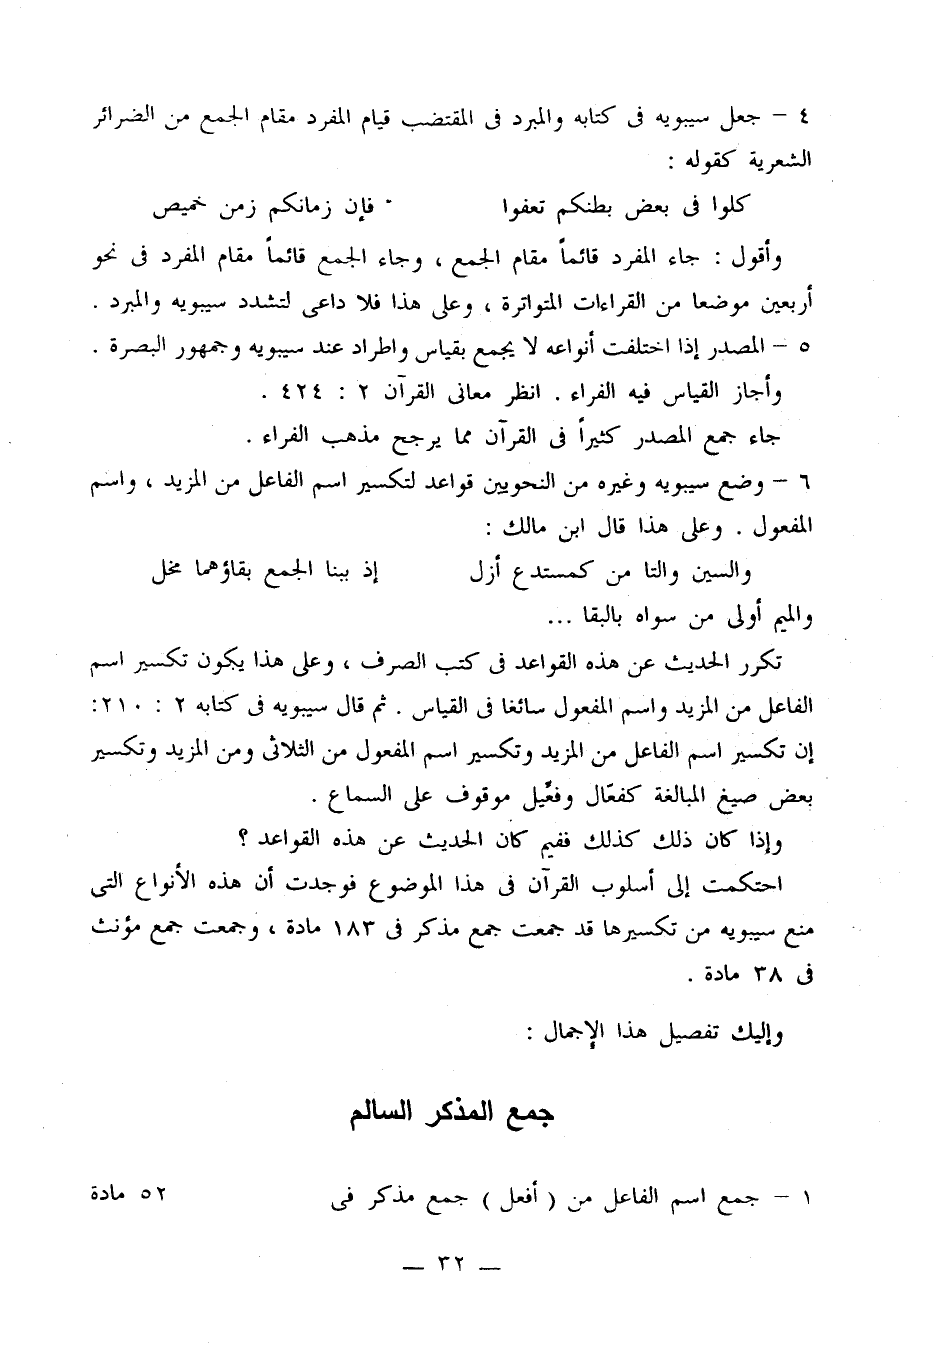 ٤ – جعل سيبويه فى كتابه والمبرد فى المقتضب قيام المفرد مقام الجمع من الضرائر
الشعرية كقوله :
كلوا فى بعض بطنكم تعفوا فإن زمانكم زمن خميص
وأقول : جاء المفرد قائماً مقام الجمع ، وجاء الجمع قائماً مقام المفرد فى نحو
أربعين موضعا من القراءات المتواترة ، وعلى هذا فلا داعى لتشدد سيبويه والمبرد .
٥ – المصدر إذا اختلفت أنواعه لا يجمع بقياس واطراد عند سيبويه وجمهور البصرة .
وأجاز القياس فيه الفراء . انظر معانى القرآن ٢ : ٤٢٤ .
جاء جمع المصدر كثيراً فى القرآن مما يرجح مذهب الفراء .
٦ – وضع سيبويه وغيره من النحويين قواعد لتكسير اسم الفاعل من المزيد ، واسم
المفعول . وعلى هذا قال ابن مالك :
والسين والتا من كمستدع أزل إذ ببنا الجمع بقاؤهما مخل
والميم أولى من سواه بالبقا ...
تكرر الحديث عن هذه القواعد فى كتب الصرف ، وعلى هذا يكون تكسير اسم
الفاعل من المزيد واسم المفعول سائغا فى القياس . ثم قال سيبويه فى كتابه ٢ : ٢١٠:
إن تكسير اسم الفاعل من المزيد وتكسير اسم المفعول من الثلاثى ومن المزيد وتكسير
بعض صيغ المبالغة كفعّال وفعّيل موقوف على السماع .
وإذا كان ذلك كذلك ففيم كان الحديث عن هذه القواعد ؟
احتكمت إلى أسلوب القرآن فى هذا الموضوع فوجدت أن هذه الأنواع التى
منع سيبويه من تكسيرها قد جمعت جمع مذكر فى ١٨٣ مادة ، وجمعت جمع مؤنث
فى ٣٨ مادة .
وإليك تفصيل هذا الإجمال :
جمع المذكر السالم
١ – جمع اسم الفاعل من ( أفعل ) جمع مذكر فى ٥٢ مادة
— ٣٢ —